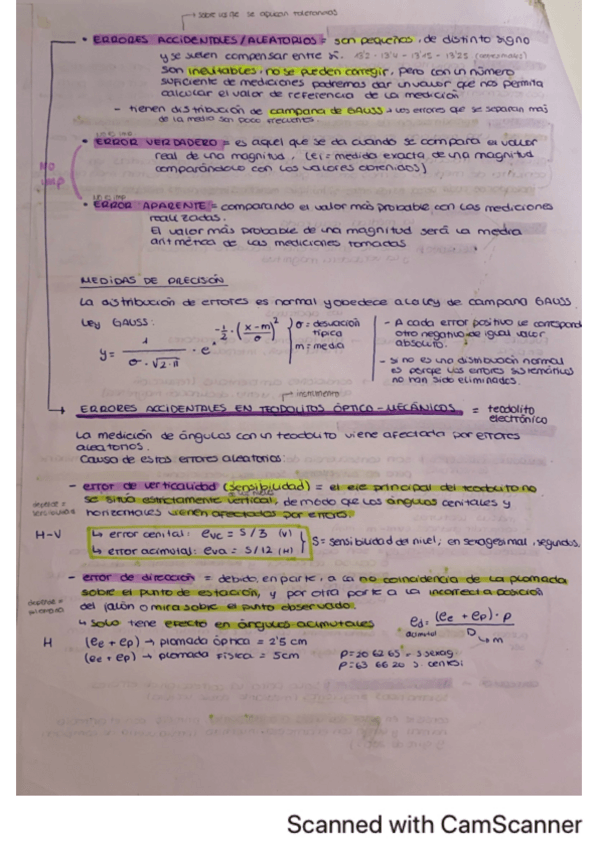 → sobre la se aplican tolerancias
• ERRORES ACCIDENTALES/ALEATORIOS = son pequeños, de distinto signo
y se suelen compensar entre sí. 13'2 - 13'4 - 13'15 - 13'25
son inevitables, no se pueden corregir, pero con un número
suficiente de mediciones podremos dar un valor que nos permita
calcular el valor de referencia de la medición
- tienen distribución de campana de GAUSS → los errores que se separan más
de la media son poco frecuentes.
NO IMP
• ERROR VERDADERO = es aquel que se da cuando se compara el valor
real de una magnitud, (ei = medida exacta de una magnitud
comparándolo con los valores obtenidos)
• ERROR APARENTE = comparando el valor más probable con las mediciones
realizadas.
El valor más probable de una magnitud será la media
aritmética de las mediciones tomadas
MEDIDAS DE PRECISIÓN
La distribución de errores es normal y obedece a la ley de campana GAUSS.
Ley GAUSS:
y = 1 / σ · √2·π · e^ -1/2 · (x-m / σ)²
σ = desviación típica
m = media
- A cada error positivo le correspond
otro negativo de igual valor
absoluto.
- Si no es una distribución normal
es porque los errores sistemáticos
no han sido eliminados.
→ instrumento
ERRORES ACCIDENTALES EN TEODOLITOS ÓPTICO-MECÁNICOS = teodolito
electrónico
La medición de ángulos con un teodolito viene afectada por errores
aleatorios.
Causa de estos errores aleatorios
- error de verticalidad (sensibilidad) = el eje principal del teodolito no
se sitúa estrictamente vertical, de modo que los ángulos cenitales y
horizontales vienen afectados por errores.
H-V
↳ error cenital: evc = S/3 (V)
↳ error acimutal: eva = S/12 (H)
S = sensibilidad del nivel; en sexagesimal, segundos.
- error de dirección = debido, en parte, a la no coincidencia de la plomada
sobre el punto de estación, y por otra parte a la incorrecta posición
del jalón o mira sobre el punto observado.
↳ solo tiene efecto en ángulos acimutales
ed = (ee + ep) · p / D → m
acimutal
H
(ee + ep) → plomada óptica = 2'5 cm
(ee + ep) → plomada física = 5cm
p = 20 62 65 → s. sexag.
p = 63 66 20 s. centesi
Scanned with CamScanner